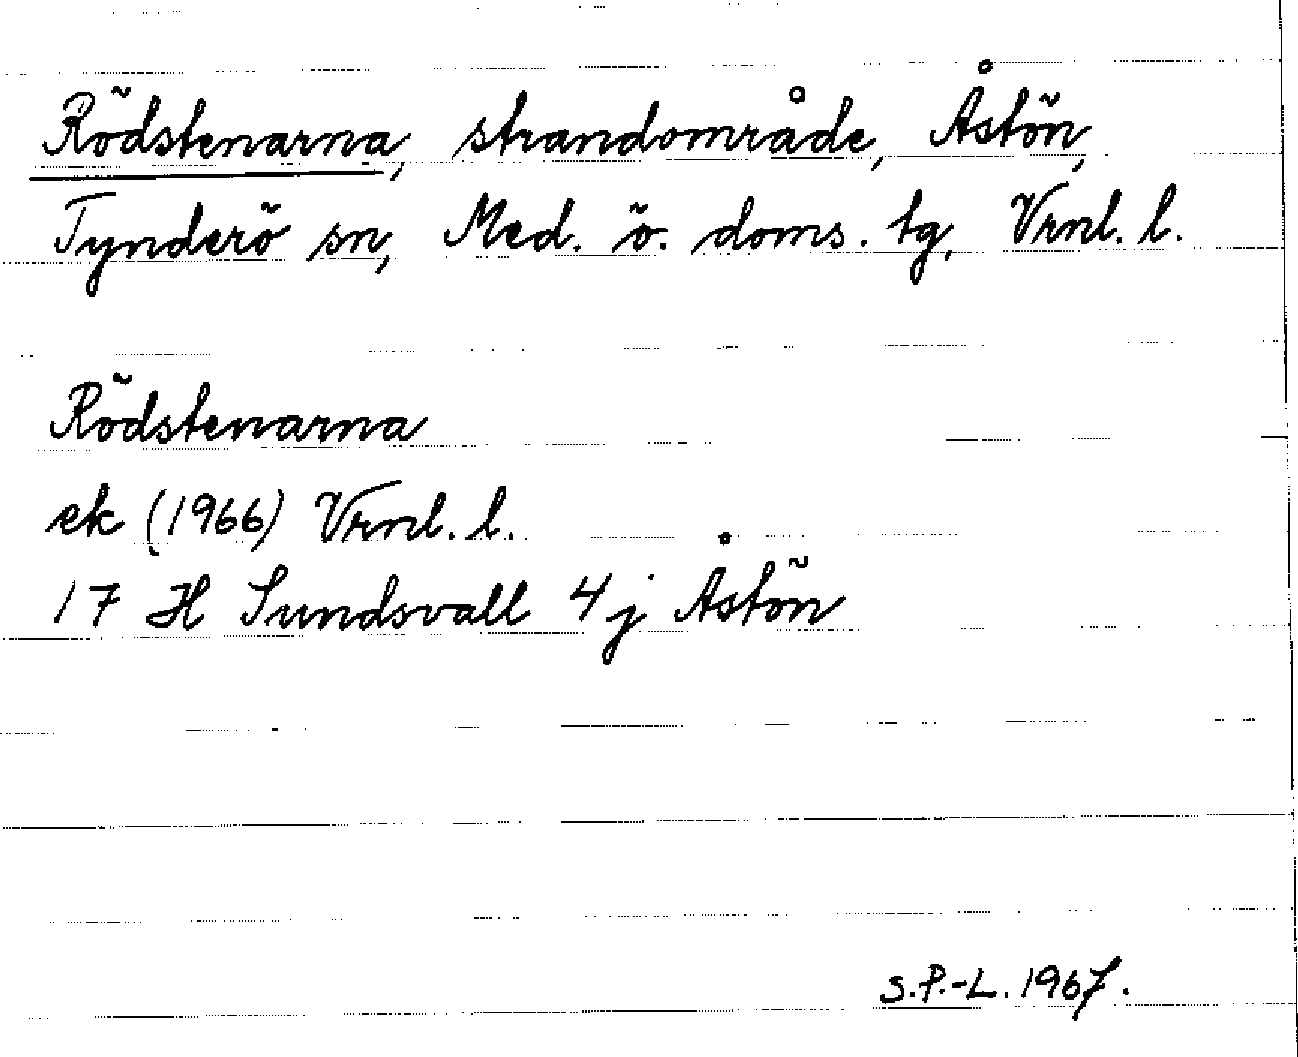 Rödstenarna, strandområde, Åstön,
Tynderö sn, Med. ö. doms. tg, Vrnl. l.
Rödstenarna
ek (1966) Vrnl. l.
17 H Sundsvall 4 j Åstön
S.P.-L. 1967.